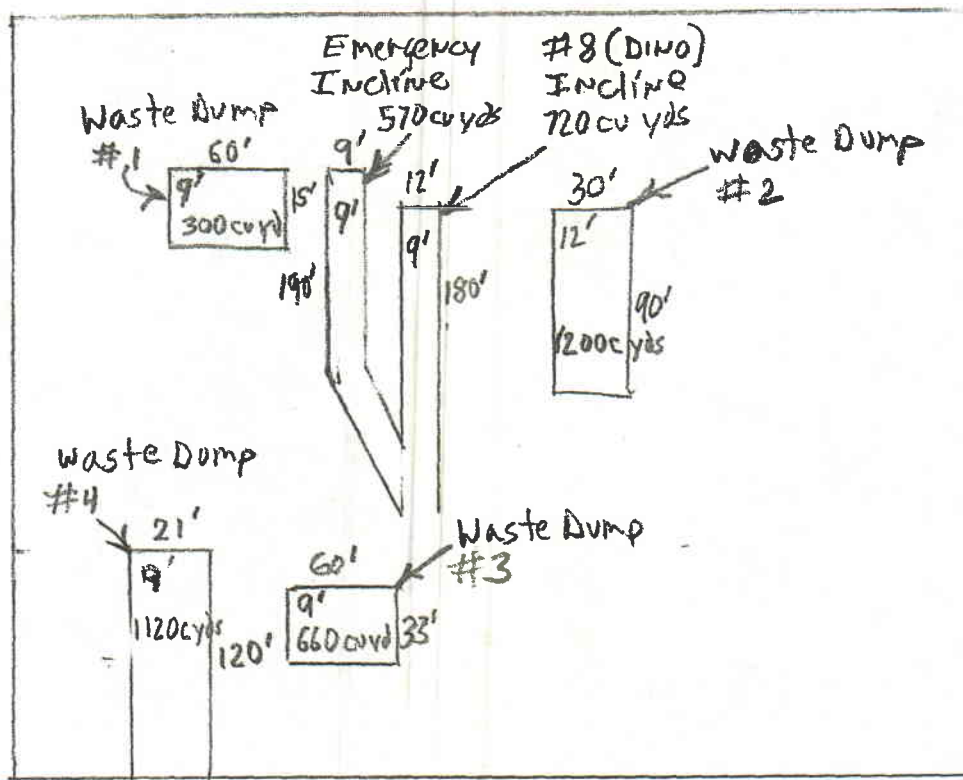 Emergency
Incline
570 cu yds
#8 (DINO)
Incline
720 cu yds
Waste Dump
#1
60'
9'
15'
300 cu yd
9'
9'
190'
12'
9'
180'
Waste Dump
#2
30'
12'
90'
1200 c yds
Waste Dump
#4
21'
9'
1120 c yds
120'
Waste Dump
#3
60'
9'
660 cu yd
33'